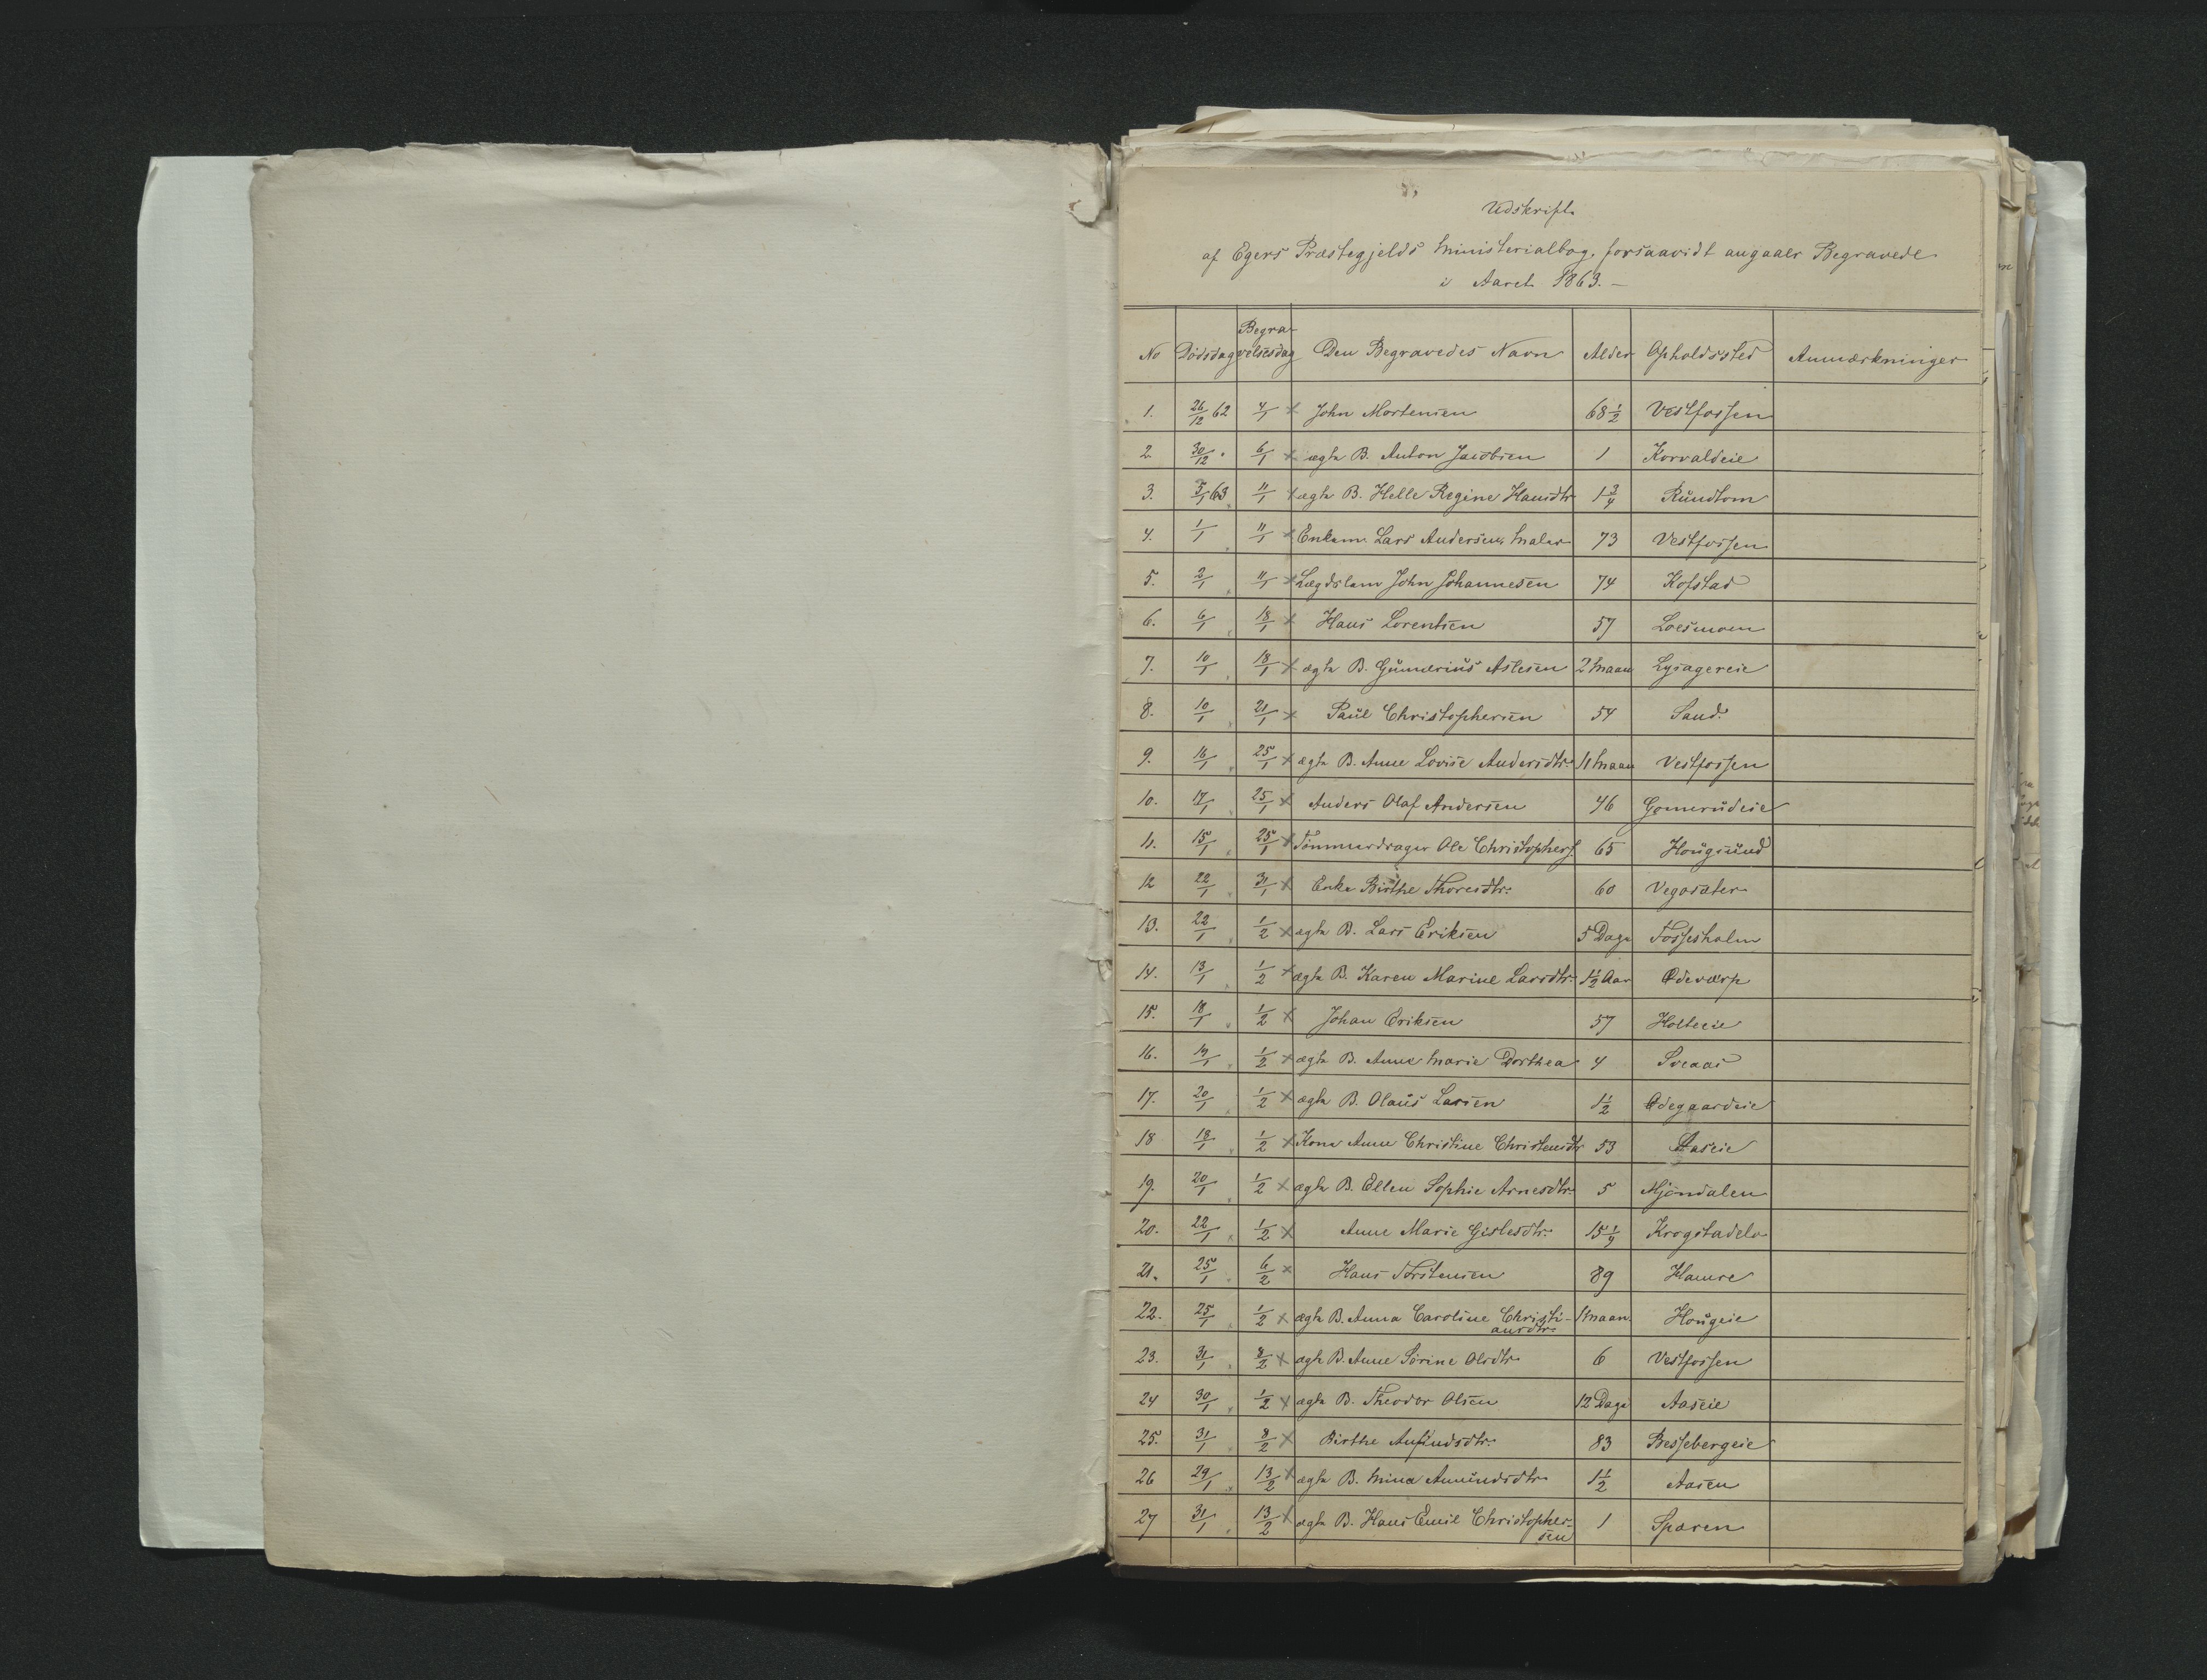 Udskrift
af Egers Præstegjelds Ministerialbog, forsaavidt angaaer Begravede
i Aaret 1863. —
No Dödsdag Begra-velsesdag Den Begravedes Navn Alder Opholdssted Anmærkninger
1. 26/12 62 4/1 x John Mortensen 68½ Vestfossen
2. 30/12 " 6/1 x ægte B. Anton Jacobsen 1 Korvaldeie
3. 5/1 63 11/1 x ægte B. Helle Regine Hansdtr 1¾ Rundtom
4. 1/1 " 11/1 x Enkem. Lars Andersen, Maler 73 Vestfossen
5. 2/1 " 11/1 x Lægdslem John Johannesen 74 Kofstad
6. 6/1 " 18/1 x Hans Lorentsen 57 Loesmoen
7. 10/1 " 18/1 x ægte B. Gunerius Aslesen 2 Maan Lysagereie
8. 10/1 " 21/1 x Paul Christophersen 54 Sand.
9. 16/1 " 25/1 x ægte B. Anne Lovise Andersdtr. 11 Maan Vestfossen
10. 17/1 " 25/1 x Anders Olaf Andersen 46 Gomerudeie
11. 15/1 " 25/1 x Tömmerdrager Ole Christophers. 65 Hougsund
12 22/1 " 31/1 x Enke Birthe Thoresdtr. 60 Vegosæter
13. 22/1 " 1/2 x ægte B. Lars Eriksen 5 Dage Fossesholm
14. 13/1 " 1/2 x ægte B. Karen Marine Larsdtr. 1½ Aar Ödeværp
15. 18/1 " 1/2 x Johan Eriksen 57 Holteeie
16. 19/1 " 1/2 x ægte B. Anne Marie Dorthea 4 Sveaas
17. 20/1 " 1/2 x ægte B. Olaus Larsen 1½ Ödegaardeie
18 18/1 " 1/2 x Kone Anne Christine Christensdtr 53 Aaseie
19. 20/1 " 1/2 x ægte B. Ellen Sophie Arnesdtr. 5 Mjöndalen
20. 22/1 " 1/2 x Anne Marie Gislesdtr. 15 Krogstadelv
21. 25/1 " 6/2 x Hans Torstensen 89 Hamre
22. 25/1 " 1/2 x ægte B. Anna Caroline Christi-
ansdtr. 1 Maan. Hougeie
23. 31/1 " 8/2 x ægte B. Anne Sörine Olsdtr. 6 Vestfossen
24 30/1 " 1/2 x ægte B. Theodor Olsen 12 Dage Aaseie
25. 31/1 " 8/2 x Birthe Anfindsdtr. 83 Bessebergeie
26 29/1 " 13/2 x ægte B. Mina Amundsdtr. 1½ Aasen
27 31/1 " 13/2 x ægte B. Hans Emil Christopher-
sen 1 Sparen